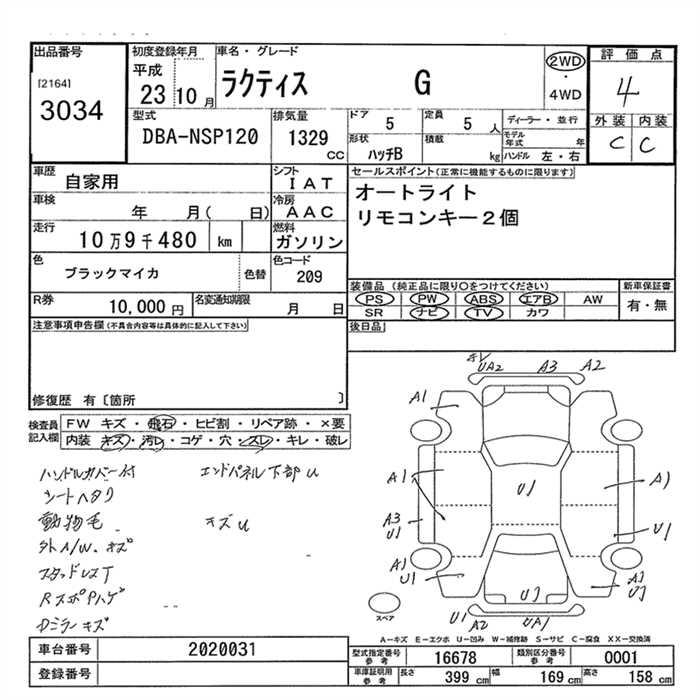 出品番号
[2164]
3034
初度登録年月
平成
23 10月
車名・グレード
ラクティス G
2WD
・
4WD
評価点
4
外装 内装
C C
型式
DBA-NSP120
排気量
1329
cc
ドア
5
定員
5人
形状
ハッチB
積載
kg
ディーラー・並行
モデル年式 年
ハンドル 左・右
車歴
自家用
シフト
IAT
車検
年 月( 日)
冷房
AAC
走行
10万9千480 km
燃料
ガソリン
色
ブラックマイカ
色替
色コード
209
R券
10,000円
名変通知期限
月 日
セールスポイント(正常に機能するものに限ります)
オートライト
リモコンキー2個
装備品(純正品に限り○をつけてください)
PS PW ABS エアB AW
SR ナビ TV カワ
新車保証書
有・無
後日品
注意事項申告欄(不具合内容等は具体的に記入して下さい)
修復歴 有〔箇所 〕
検査員
記入欄
FW キズ・飛石・ヒビ割・リペア跡・×要
内装 キズ・汚レ・コゲ・穴・スレ・キレ・破レ
ハンドルカバー付 エンドパネル下部U
シートヘタリ
動物毛 キズU
外A/W、キズ
スタッドレスT
RスポPハゲ
Dミラーキズ
UA2 A3 A2
A1
A1 U1 A1
A3
U1 U1
A1
U1
U1
U1 A2 UA1
スペア
A-キズ E-エクボ U-凹み W-補修跡 S-サビ C-腐食 XX-交換済
車台番号
2020031
登録番号
型式指定番号
参考
16678
類別区分番号
参考
0001
車庫証明用
参考
長さ 399 cm 幅 169 cm 高さ 158 cm